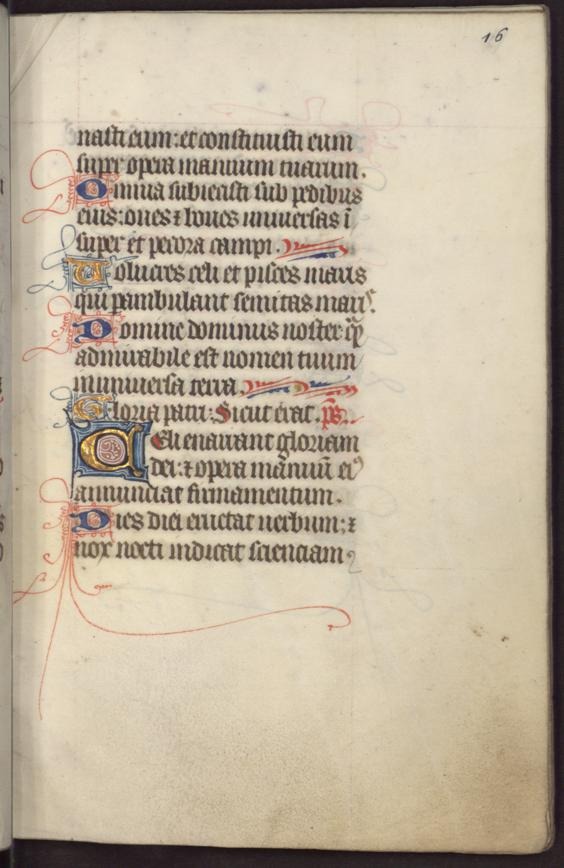 16
nasti eum: et constituisti eum
super opera manuum tuarum.
Omnia subiecisti sub pedibus
eius: oues ⁊ boues uniuersas ī
super et pecora campi.
Volucres celi et pisces maris
qui pambulant semitas maris.
Domine dominus noster qͣ̄
admirabile est nomen tuum
in uniuersa terra.
Gloria patri: Sicut erat. ps.
Celi enarrant gloriam
dei: ⁊ opera manuū eiꝰ
annunciat firmamentum.
Dies diei eructat uerbum: ⁊
nox nocti indicat scienciam